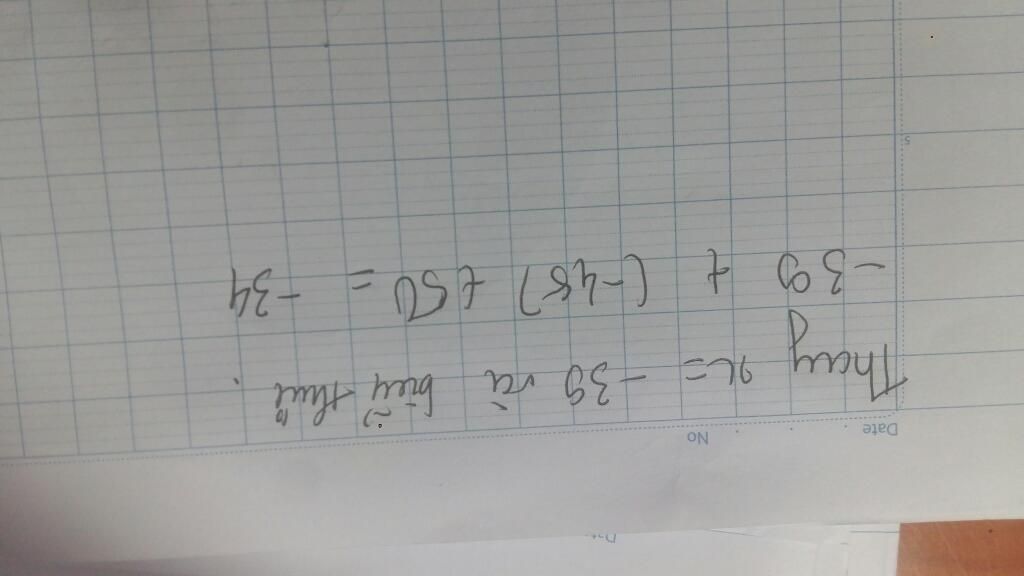 Date . . . No
Thay x = -39 và biểu thức .
-39 + (-45) + 50 = -34
5